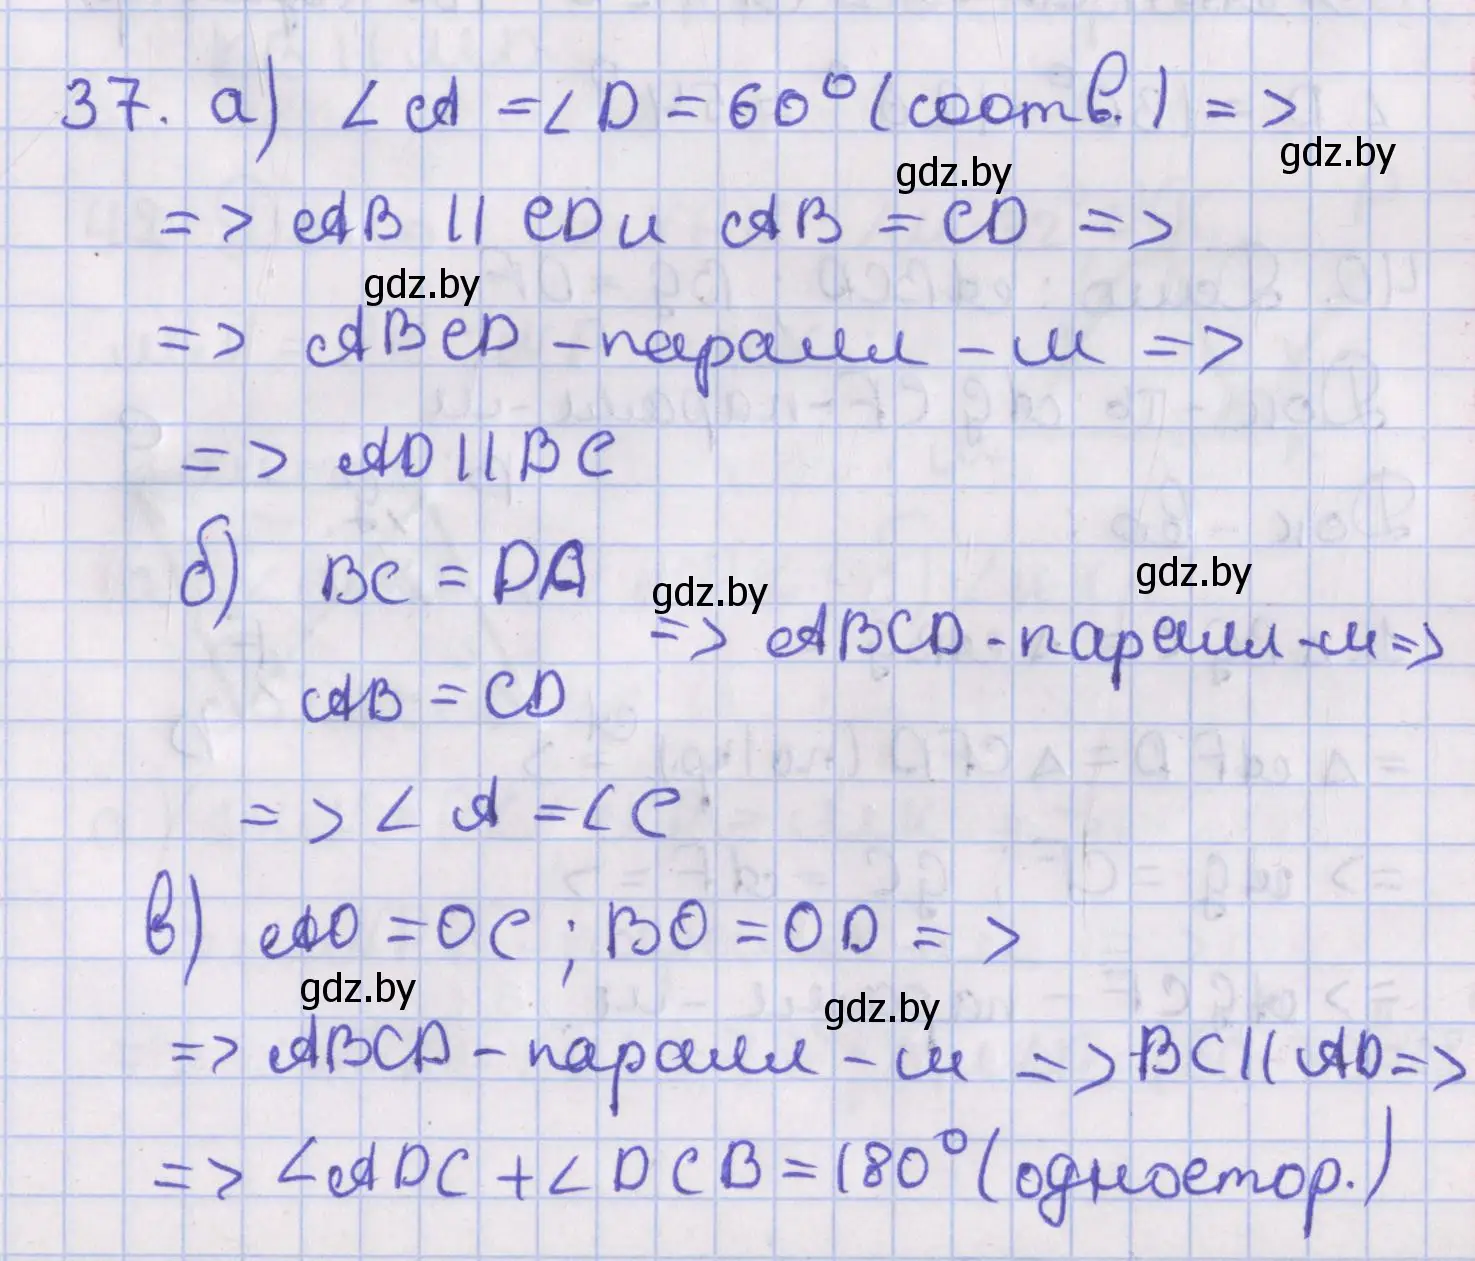 37. а) ∠A = ∠D = 60° (соотв.) =>
gdz.by
gdz.by
=> AB || CD и AB = CD =>
gdz.by
=> ABCD - паралл - м =>
=> AD || BC
б) BC = DA
gdz.by
gdz.by
=> ABCD - паралл - м =>
AB = CD
=> ∠A = ∠C
в) AO = OC ; BO = OD = >
gdz.by
gdz.by
=> ABCD - паралл - м => BC || AD =>
=> ∠ADC + ∠DCB = 180° (одностор.)